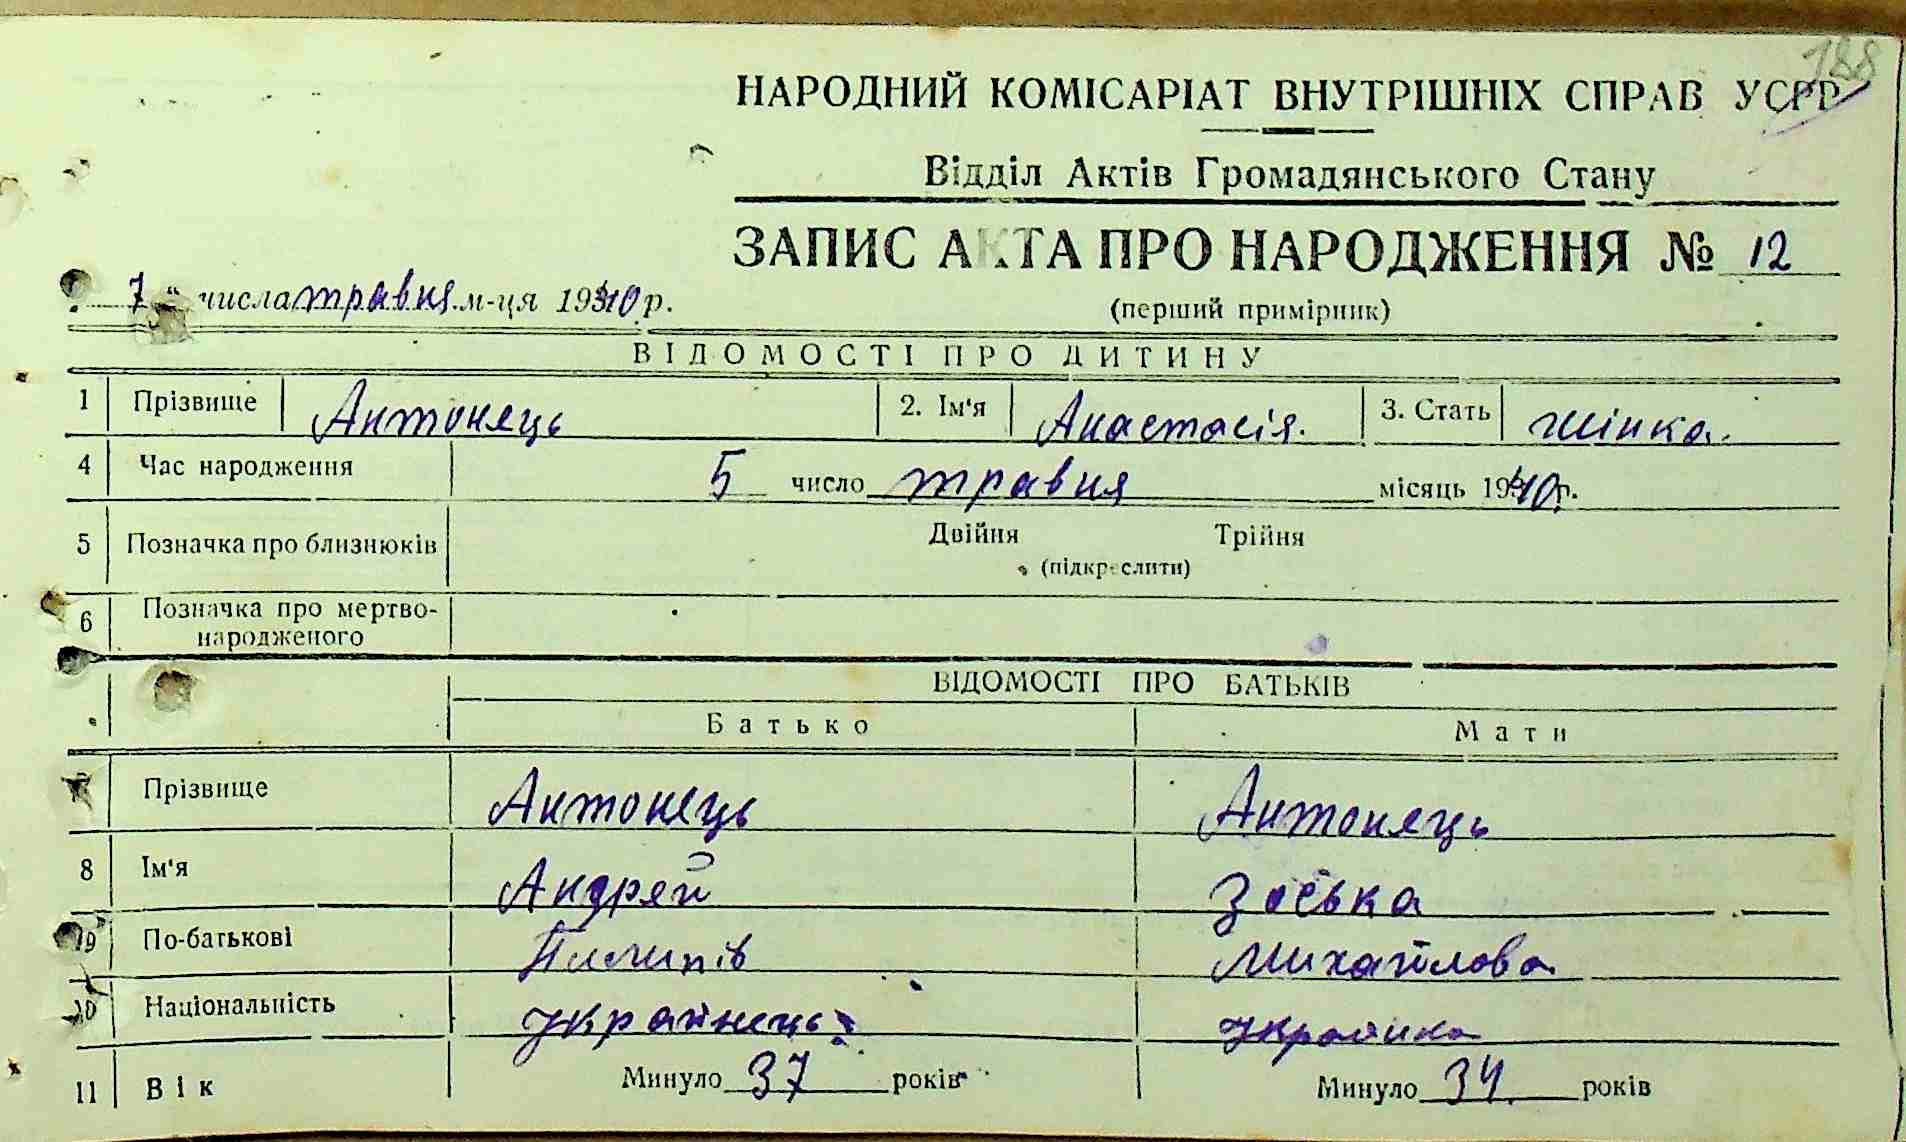 188
НАРОДНИЙ КОМІСАРІАТ ВНУТРІШНІХ СПРАВ УСРР
Відділ Актів Громадянського Стану
ЗАПИС АКТА ПРО НАРОДЖЕННЯ № 12
7 " числа травня м-ця 1940 р.
(перший примірник)
ВІДОМОСТІ ПРО ДИТИНУ
1 Прізвище Антонець 2. Ім'я Анастасія. 3. Стать жінка.
4 Час народження 5 число травня місяць 1940 р.
5 Позначка про близнюків Двійня Трійня
(підкреслити)
6 Позначка про мертво-
народженого
ВІДОМОСТІ ПРО БАТЬКІВ
Батько Мати
7 Прізвище Антонець Антонець
8 Ім'я Андрей Зоська
9 По-батькові Пилипів Михайлова
10 Національність українець українка
11 Вік Минуло 37 років Минуло 34 років